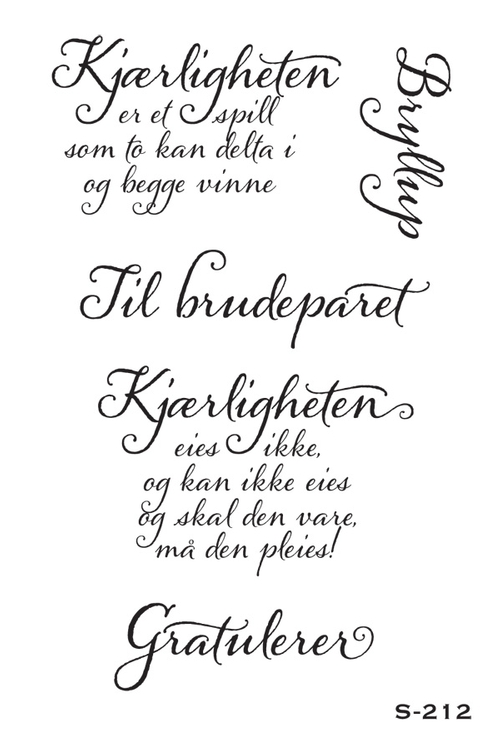 Kjærligheten
er et spill
som to kan delta i
og begge vinne
Bryllup
Til brudeparet
Kjærligheten
eies ikke,
og kan ikke eies
og skal den vare,
må den pleies!
Gratulerer
S-212